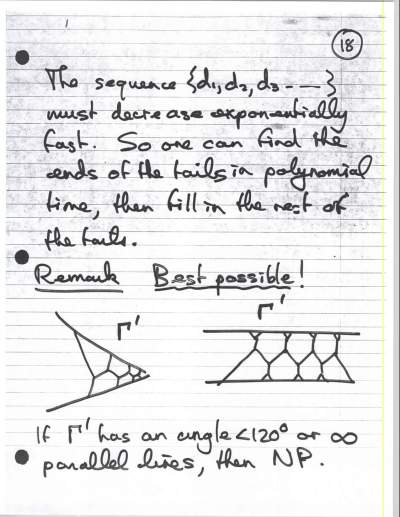 18
The sequence {d1, d2, d3 ---}
must decrease exponentially
fast. So one can find the
ends of the tails in polynomial
time, then fill in the rest of
the tails.
Remark Best possible!
Γ' Γ'
If Γ' has an angle <120° or ∞
parallel lines, then NP.